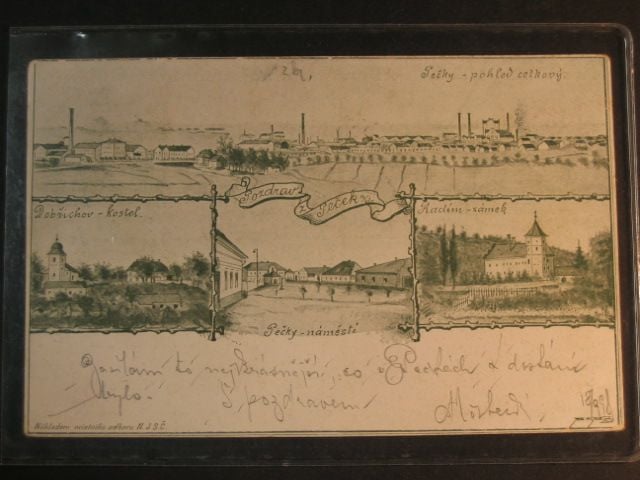 Pečky - pohled celkový.
Pozdrav
z Peček
Dobřichov - kostel.
Radim - zámek
Pečky - náměstí
to nejkrásnější, co v Pečkách k dostání
bylo. S pozdravem
Nákladem místního odboru N.J.S.Č.